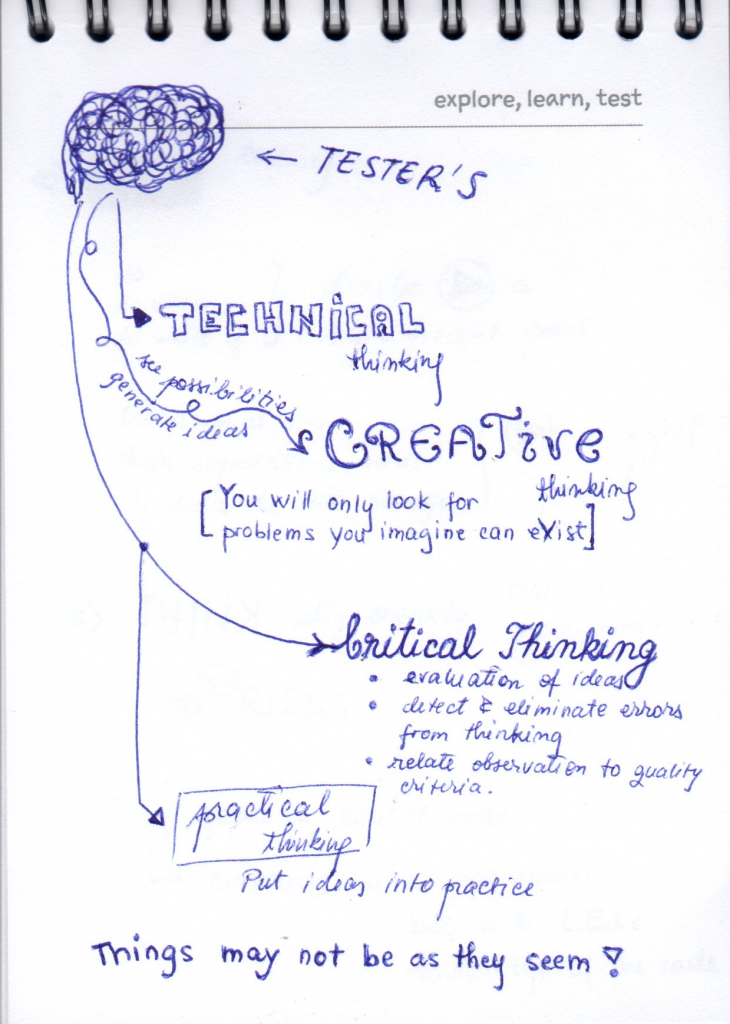 explore, learn, test
← TESTER'S
TECHNICAL
thinking
see possibilities
generate ideas
CREATive
thinking
[You will only look for
problems you imagine can exist]
Critical Thinking
• evaluation of ideas
• detect & eliminate errors
from thinking
• relate observation to quality
criteria.
practical
thinking
Put ideas into practice
Things may not be as they seem !